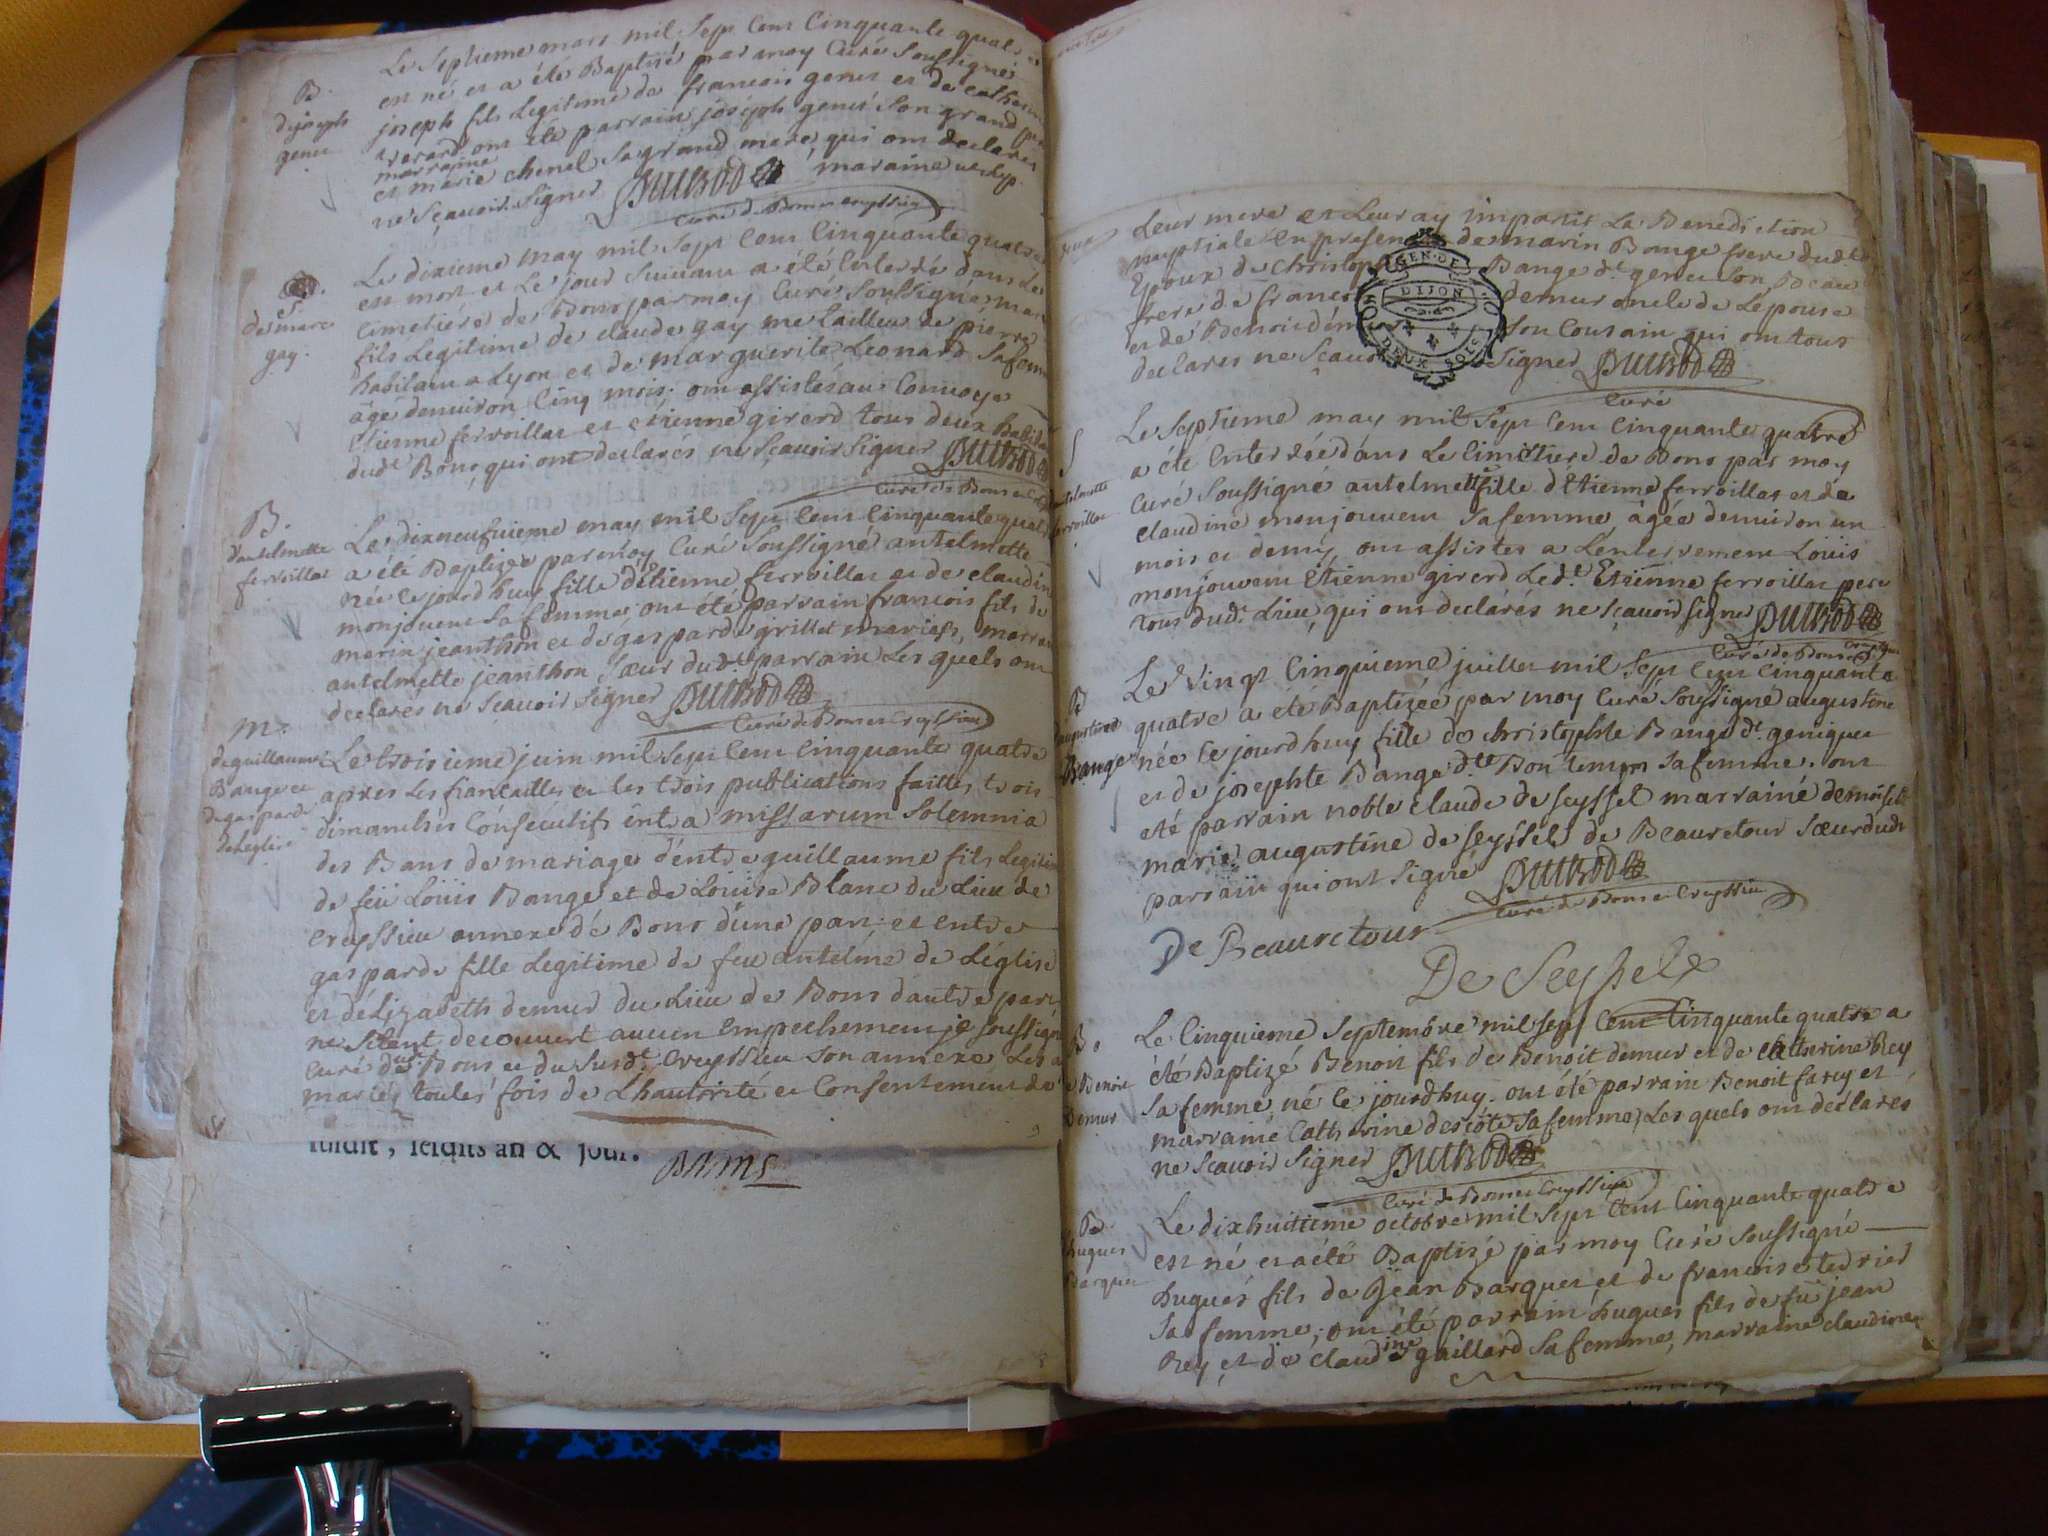 Le Septieme mars mil Sept Cent Cinquante quatre
est né et a été Baptisé par moy Curé Soussigné
joseph fils legitime de francois genet et de catherine
ont été parrain joseph genet Son grand pere
marraine
et marie chenel Sa grand mere, qui ont declarés
ne Sçavoir Signer
Curé de Bons et Creyssieu
B.
de joseph
genet
Le dixieme may mil Sept Cent Cinquante quatre
est mort et Le jour Suivant a été Enterré dans Le
Cimetiere de Bons par moy Curé Soussigné marc
fils Legitime de claude gay me tailleur de pierre
habitant a Lyon et de marguerite Leonard Sa femme
âgé d'enuiron Cinq mois. ont assistés au Convoye
Etienne ferroillat et etienne girerd tous deux habitants
dudt Bons, qui ont declarés ne Sçauoir Signer
Curé de Bons et Creyssieu
S.
de marc
gay.
Le dixneufuieme may mil Sept Cent Cinquante quatre
a été Baptizée par moy Curé Soussigné antelmette
née ce jourdhuy fille d'Etienne ferroillat et de claudine
monjouvent Sa femme, ont été parrain francois fils de
marin jeanthon et de gasparde grillet mariés, marraine
antelmette jeanthon Sœur dudt parrain Les quels ont
declarés ne Sçauoir Signer
Curé de Bons et Creyssieu
B.
d'antelmette
ferroillat
Le troisieme juin mil Sept Cent Cinquante quatre
apres les fiancailles et les trois publications faittes trois
dimanches Consécutifs intra missarum Solemnia
des Bans de mariage d'entre guillaume fils Legitime
de feü Loüis Bange et de Loüise Blanc du Lieu de
Creyssieu annexe dé Bons d'une part; et entre
gasparde fille Legitime de feu antelme de Léglise
et d'Elizabeth demur du Lieu de Bons dautre part
ne S'etant decouvert aucun Empechement je Soussigné
Curé dudt Bons et du Susdt. Creyssieu Son annexe Les ai
mariés toutes fois de L'hautorité et Consentement de
m.
de guillaume
Bange et
de gasparde
de Leglise
ludit, lesdits an & jour.
Leur mere et Leur ay impartis La Benediction
nuptiale En presence de marin Bange frere dudt
Epoux de christophe Bange dt. genet Son Beau
frere de francois demur oncle de Lepouse
et dé Benoit demur Son Cousain qui ont tous
declares ne Scauoir Signer
Curé
GEN. DE
DIJON
DEUX SOLS
Le Septieme may mil Sept Cent Cinquante quatre
a été Enterrée dans Le Cimetiere de Bons par moy
Curé Soussigné antelmette fille d'Etienne ferroillat et de
claudine monjouvent Sa femme, âgée denuiron un
mois et demy, ont assistés a Lenterrement Loüis
monjouvent Etienne girerd Ledt. Etienne ferroillat pere
tous dudt. Lieu, qui ont declarés ne Sçauoir signer
Curé de Bons et Creyssieu
S
antelmette
ferroillat
Le Vingt Cinquieme juillet mil Sept Cent Cinquante
quatre a été Baptizée par moy Curé Soussigné augustine
née Ce jourdhuy fille de christophle Bange dt. geniquet
et de josephte Bange dte Bon temps Sa femme. ont
eté parrain noble claude de seyssel marraine demoiselle
marie augustine de seyssel de Beauretour Sœur dudt
parrain qui ont Signé
Curé de Bons et Creyssieu
De Beauretour
De Seyssel
B
d'augustine
Bange
Le Cinquieme Septembre mil sept Cent Cinquante quatre a
été Baptizé Benoit fils de Benoit demur et de Catherine Rey
Sa femme, né ce jourdhuy. ont été parrain Benoit farcy et
marraine Catherine descôte Sa femme, Les quels ont declarés
ne Sçauoir Signer
Curé de Bons et Creyssieu
B.
de Benoit
Demur
Le dixhuitieme octobre mil Sept Cent Cinquante quatre
est né et a été Baptizé par moy Curé Soussigné
hugues fils de Jean Barquet et de francoise tedrier
Sa femme; ont été parrain hugues fils de fü jean
Rey, et de claudine gaillard Sa femme, marraine claudine
B.
hugues
Barquet